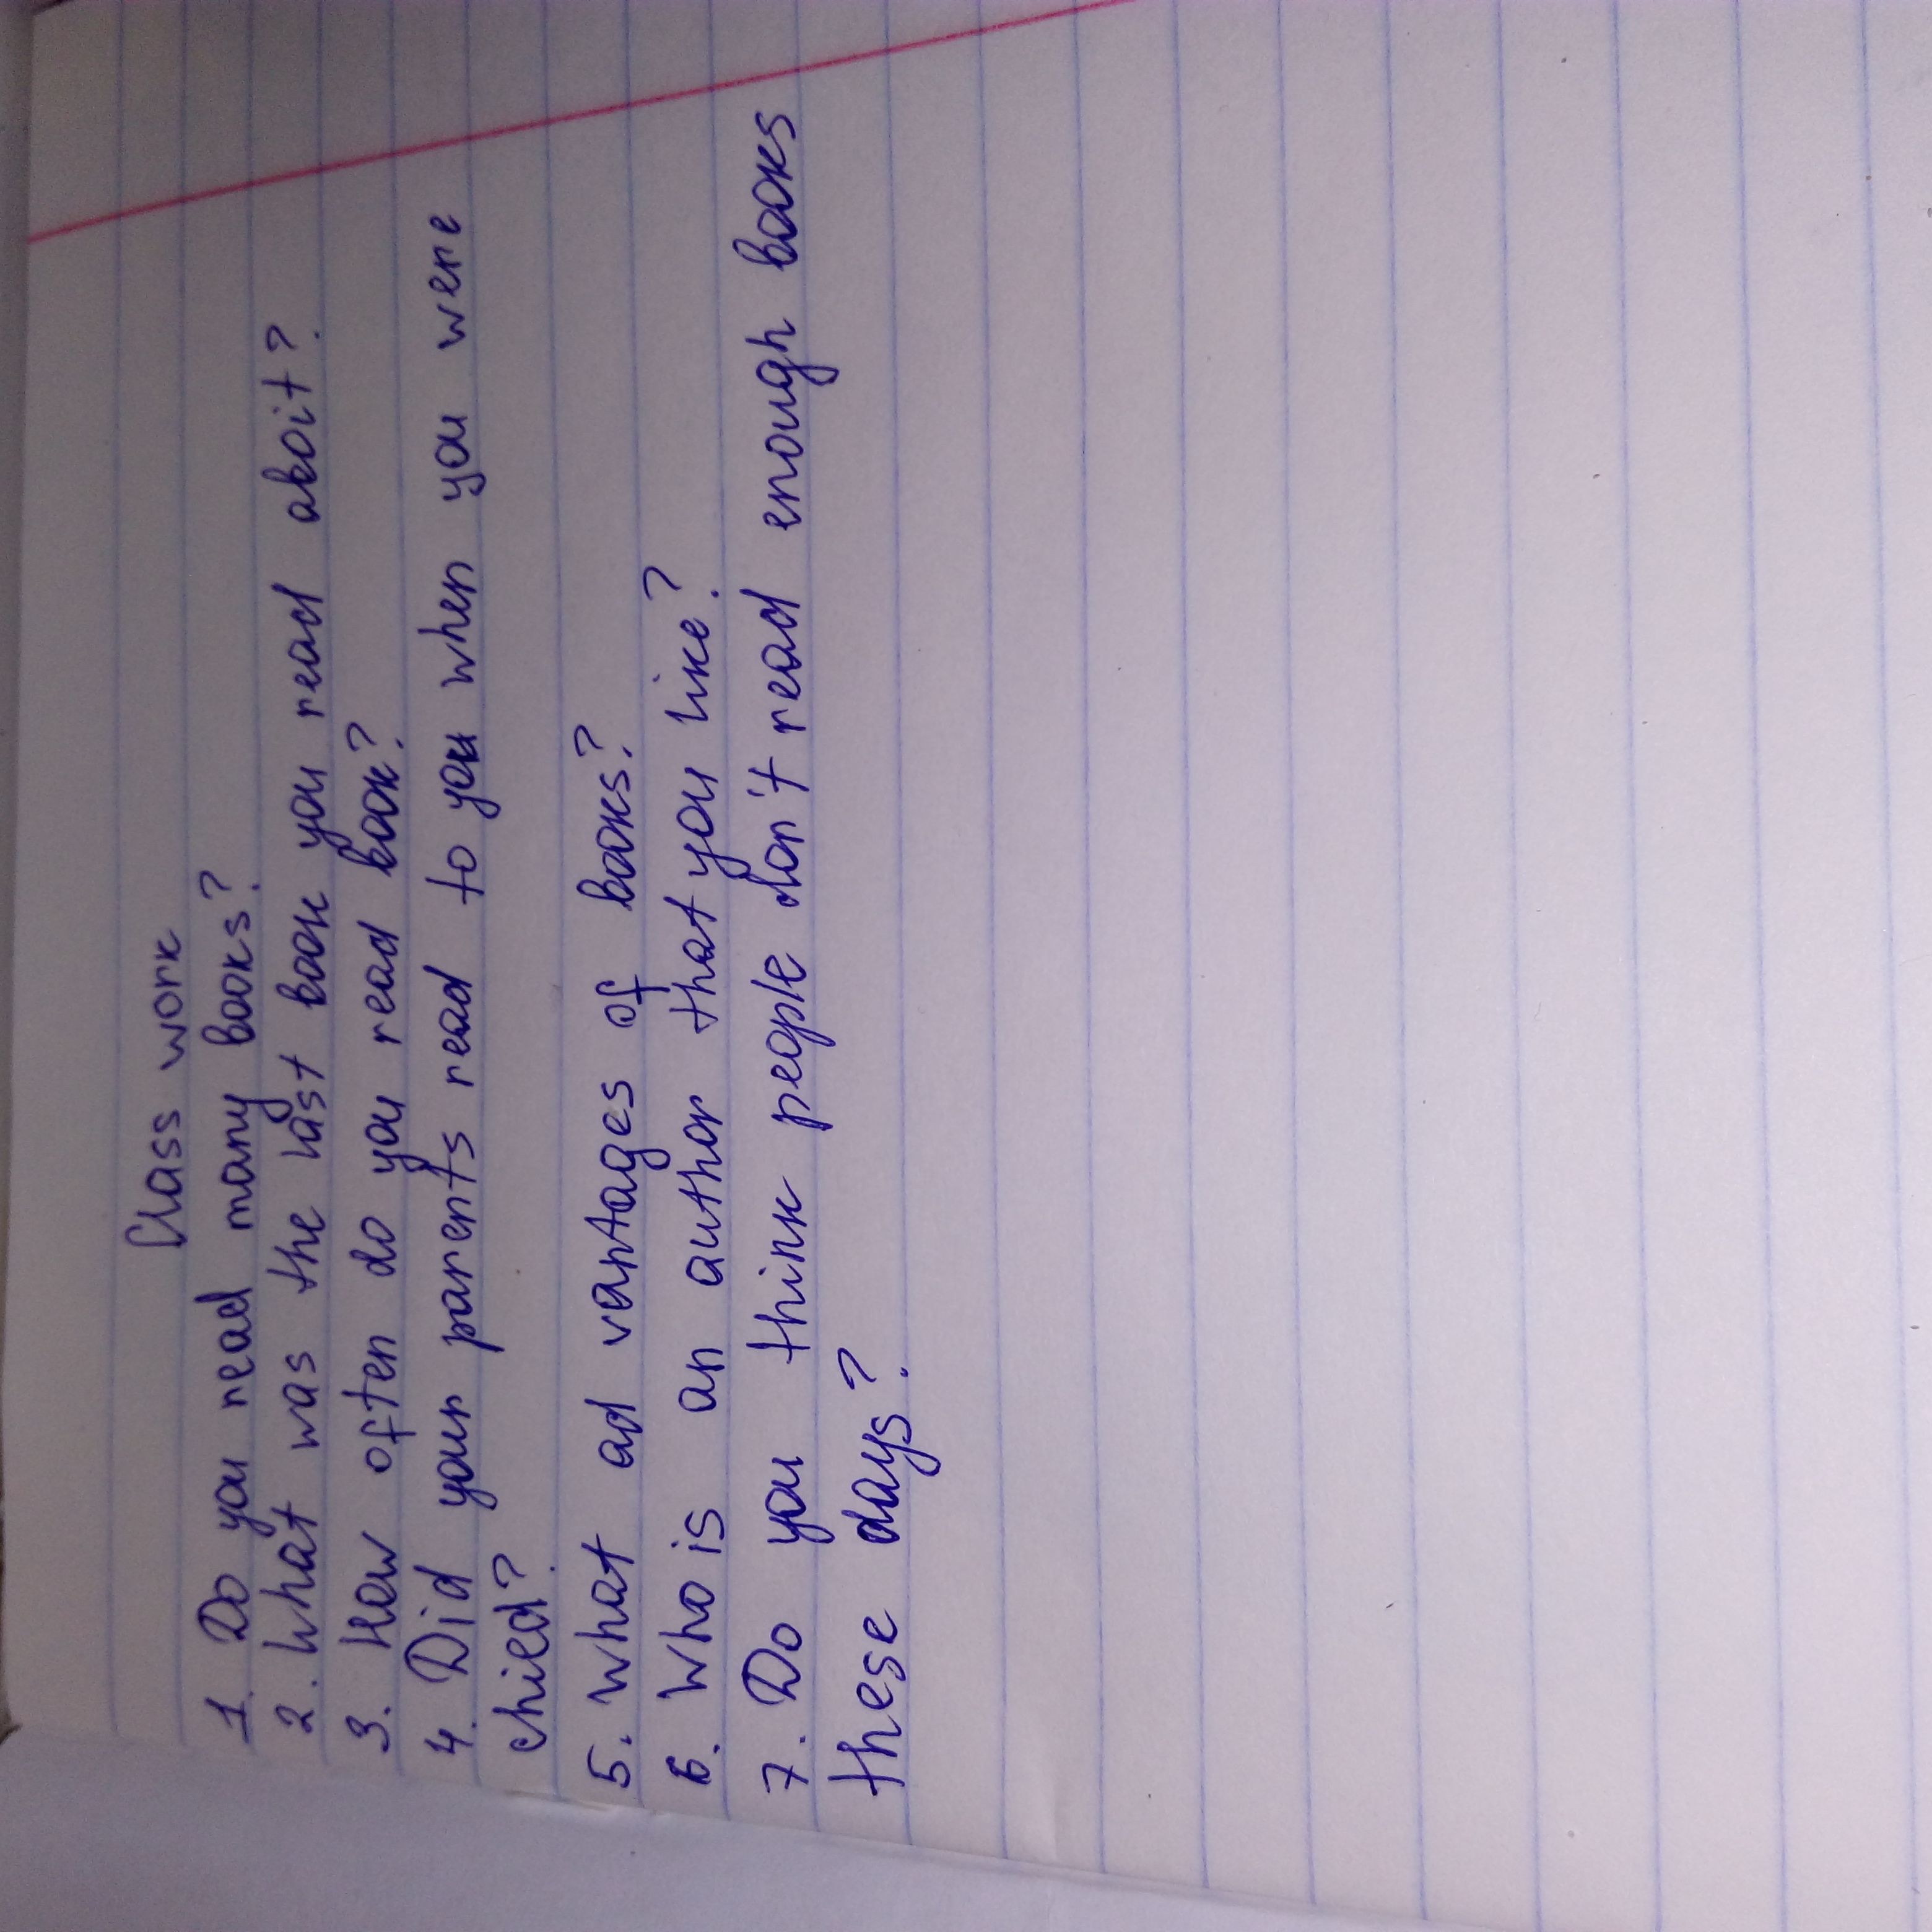 Class work
1. Do you read many books?
2. What was the last book you read aboit?
3. How often do you read book?
4. Did your parents read to you when you were
chied?
5. What ad vantages of books?
6. Who is an author that you like?
7. Do you think people don't read enough books
these days?